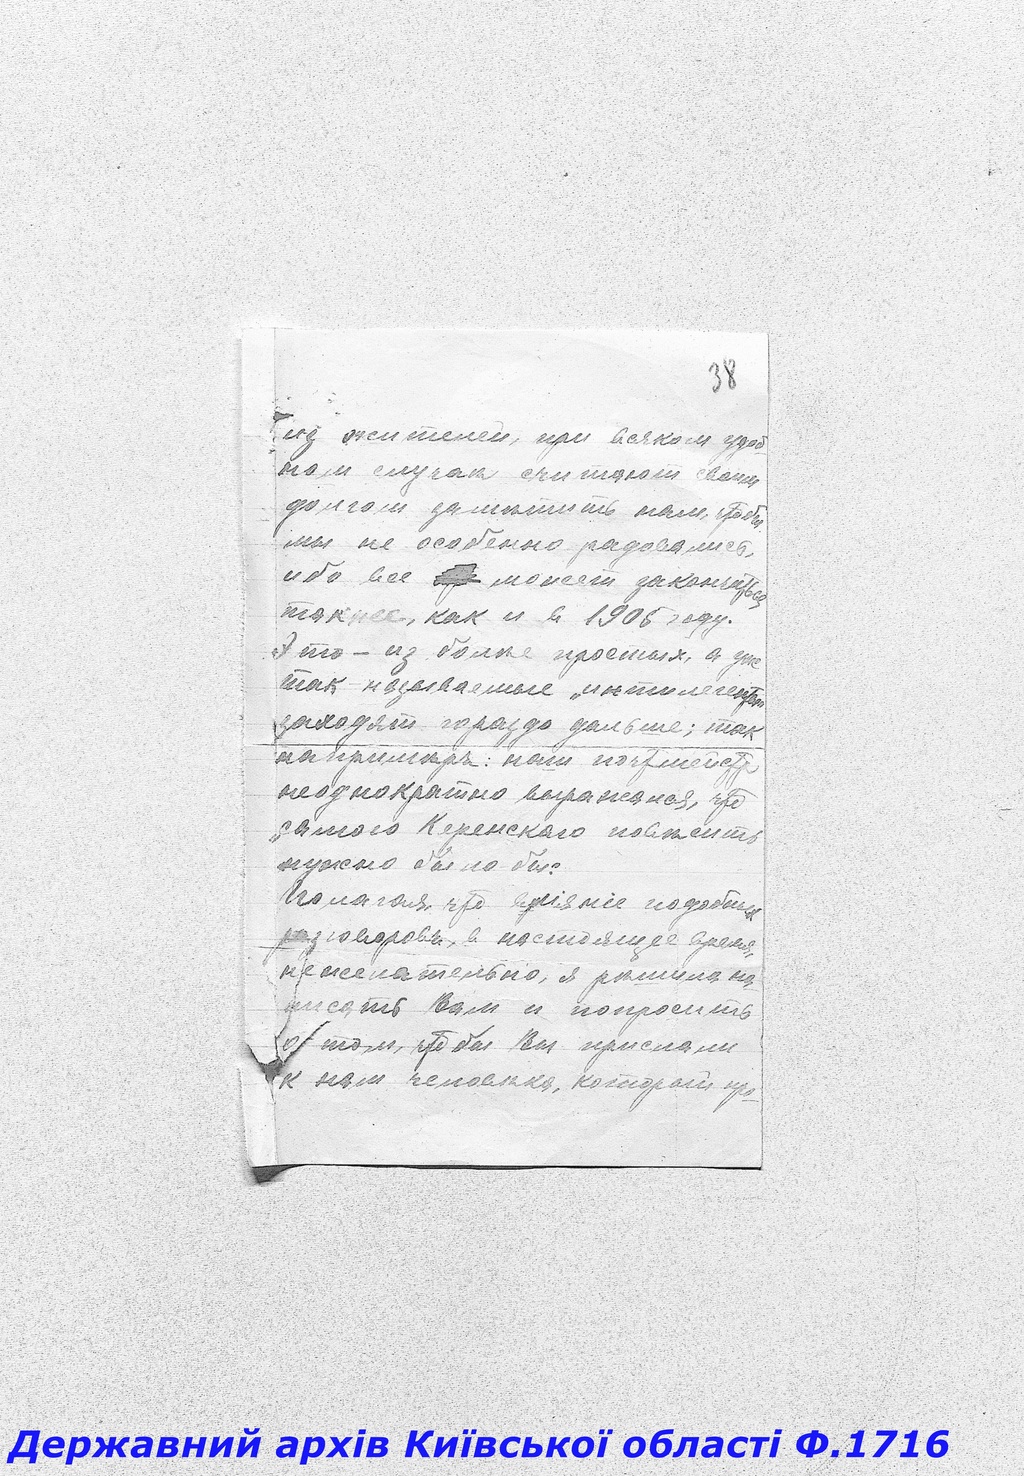 38
из жителей, при всяком удоб
ном случаѣ считают своим
долгом замѣтить нам, чтобы
мы не особенно радовались,
ибо все может закончиться
также, как и в 1905 году.
Это – из болѣе простых, а уже
так называемые „интилегенты
заходят гораздо дальше; так
напримѣръ: наш почтмейстр
неоднократно выражался, что
„самого Керенскаго повѣсить
нужно было бы"
Полагая, что вліяніе подобных
разговоровъ, в настоящее время,
нежелательно, я рѣшила на
писать Вам и попросить
о том, чтобы Вы прислали
к нам человѣка, который про-
Державний архів Київської області Ф.1716